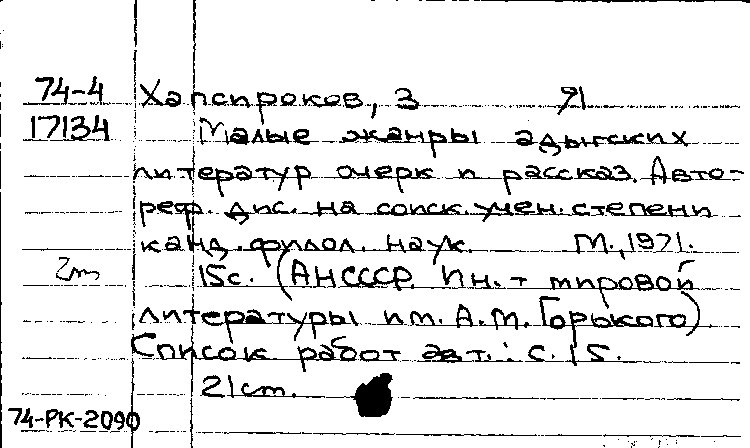 74-4 Хапсироков, З Я
17134 Малые жанры адыгских
литератур очерк и рассказ. Авто-
реф. дис. на соиск. учен. степени
канд. филол. наук. М., 1971.
2m 15с. (АНСССР. Ин.-т мировой
литературы им. А.М. Горького)
Список работ авт.: с. 15.
21cm.
74-РК-2090